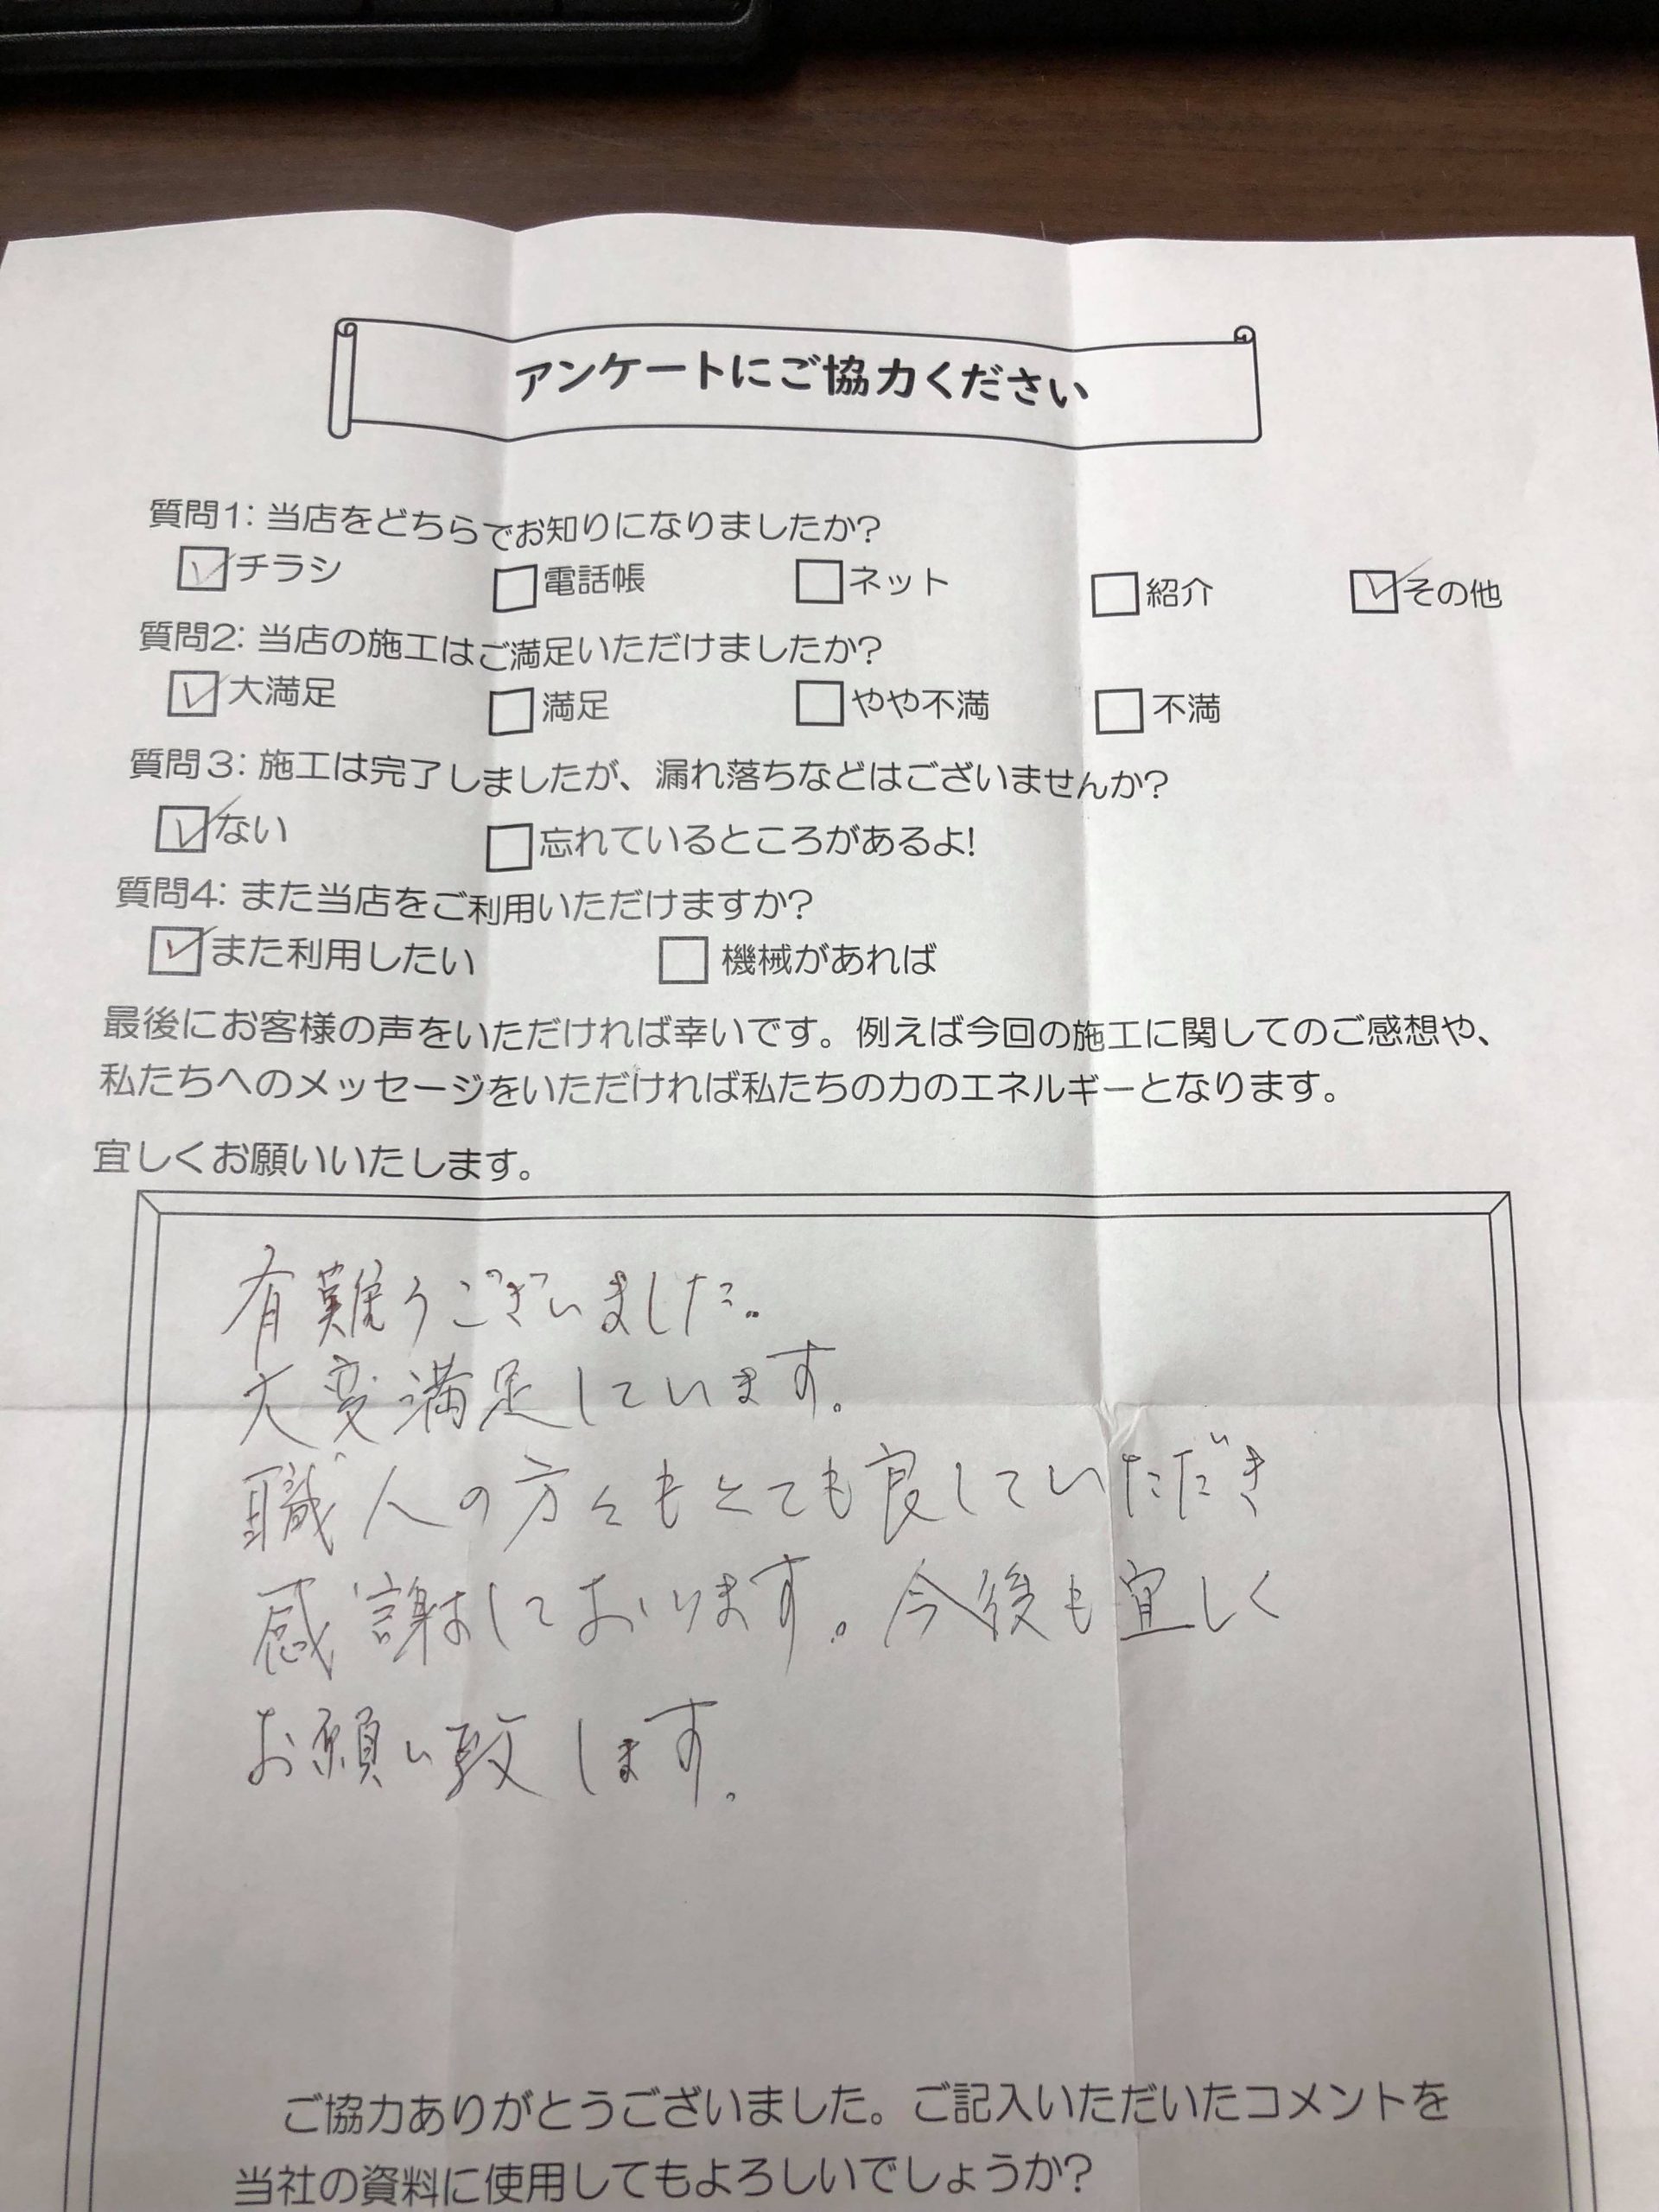 アンケートにご協力ください
質問1: 当店をどちらでお知りになりましたか?
☑チラシ ☐電話帳 ☐ネット ☐紹介 ☑その他
質問2: 当店の施工はご満足いただけましたか?
☑大満足 ☐満足 ☐やや不満 ☐不満
質問3: 施工は完了しましたが、漏れ落ちなどはございませんか?
☑ない ☐忘れているところがあるよ!
質問4: また当店をご利用いただけますか?
☑また利用したい ☐機械があれば
最後にお客様の声をいただければ幸いです。例えば今回の施工に関してのご感想や、
私たちへのメッセージをいただければ私たちの力のエネルギーとなります。
宜しくお願いいたします。
有難うございました。
大変満足しています。
職人の方々もとても良していただき
感謝しております。今後も宜しく
お願い致します。
ご協力ありがとうございました。ご記入いただいたコメントを
当社の資料に使用してもよろしいでしょうか?